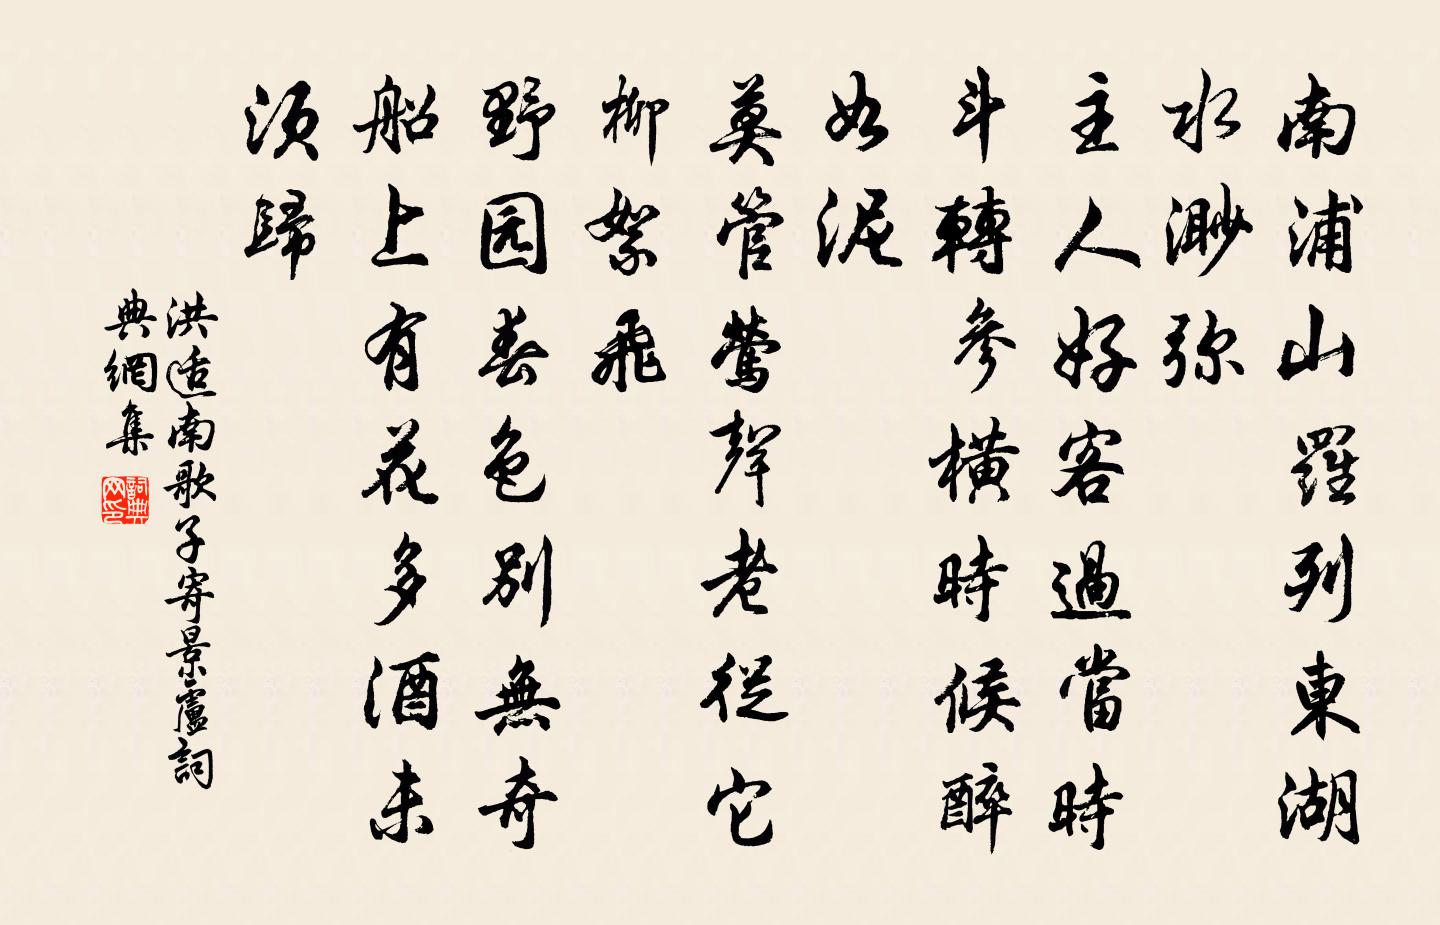 南浦山羅列東湖
水渺弥
主人好客過當時
斗轉參橫時候醉
如泥
莫管鶯聲老從它
柳絮飛
野园春色別無奇
船上有花多酒未
須歸
洪适南歌子寄景廬詞
典網集
詞典网印